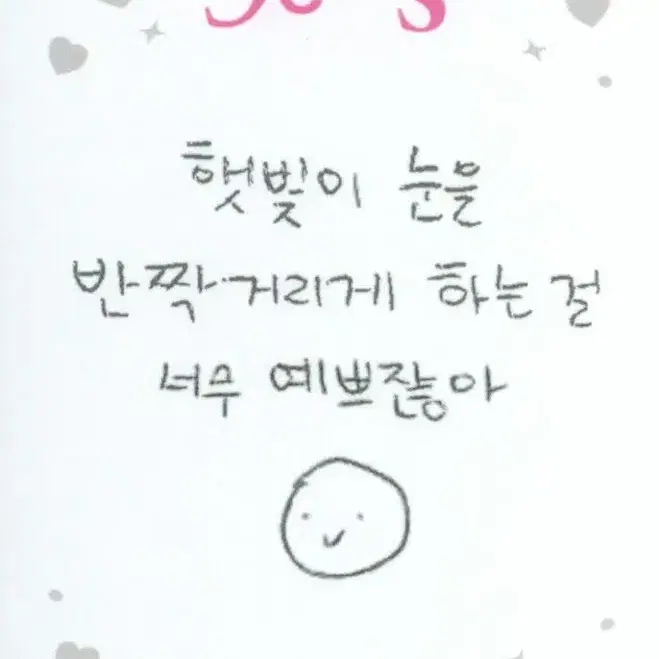 햇빛이 눈을
반짝거리게 하는걸
너무 예쁘잖아